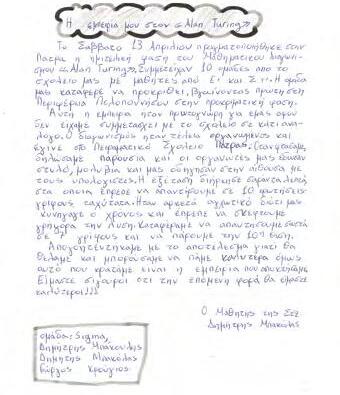 Η εμπειρία μου στον «Alan Turing»
Το Σάββατο 13 Απριλίου πραγματοποιήθηκε στην
Πάτρα η ημιτελική φάση του Μαθηματικού Διαγωνι-
σμού «Alan Turing». Συμμετείχαν 10 ομάδες από το
σχολείο μας με μαθητές από Ε' και Στ'. Η ομάδα
μας κατάφερε να προκριθεί, βγαίνοντας πρώτη στη
Περιφέρεια Πελοποννήσου στην προκριματική φάση.
Αυτή η εμπειρία ήταν πρωτόγνωρη για εμάς αφού
δεν είχαμε συμμετάσχει με το σχολείο σε κάτι ανά-
λογο. Ο διαγωνισμός ήταν τέλεια οργανωμένος και
έγινε στο Πειραματικό Σχολείο Πάτρας.
δηλώσαμε παρουσία και οι οργανωτές μας έδωσαν
στυλό, μολύβια και μας οδήγησαν στην αίθουσα με
τους υπολογιστές. Η εξέταση διήρκησε σαράντα λεπτά
στα οποία έπρεπε να απαντήσουμε σε 10 ερωτήσεις
γρίφους ταχύτατα. Ήταν αρκετά αγχωτικό διότι μας
κυνηγάγε ο χρόνος και έπρεπε να σκεφτούμε
γρήγορα την λύση. Καταφέραμε να απαντήσουμε σωστά
σε γρίφους και να πάρουμε την 10η θέση.
Απογοητευτήκαμε με το αποτέλεσμα γιατί θα
θέλαμε και μπορούσαμε να πάμε καλύτερα όμως
αυτό που κρατάμε είναι η εμπειρία που αποκτήσαμε.
Είμαστε σίγουροι ότι την επόμενη φορά θα είμαστε
καλύτεροι!!!
Ο Μαθητής της Στ2
Δημήτρης Μπακόλας
ομάδα: Sigma,
Δημήτρης Μπακουλής
Δημήτρης Μπακόλας
Γιώργος